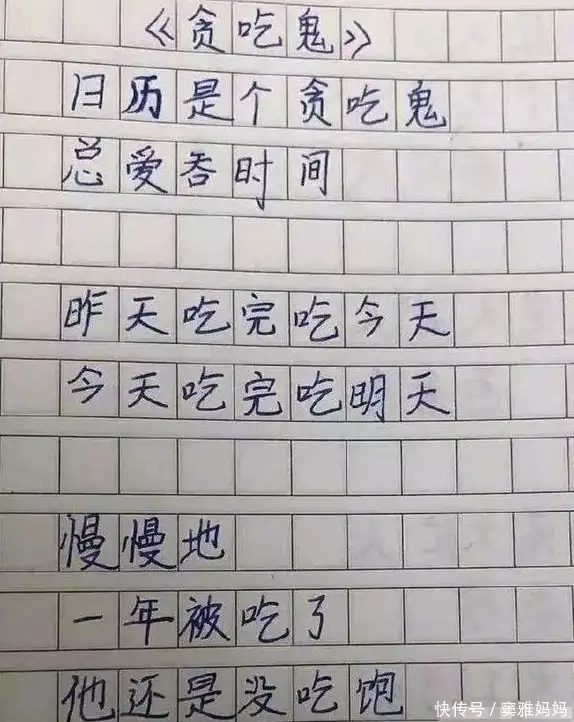 《贪吃鬼》
日历是个贪吃鬼
总爱吞时间
昨天吃完吃今天
今天吃完吃明天
慢慢地
一年被吃了
他还是没吃饱
快传号/窦雅妈妈